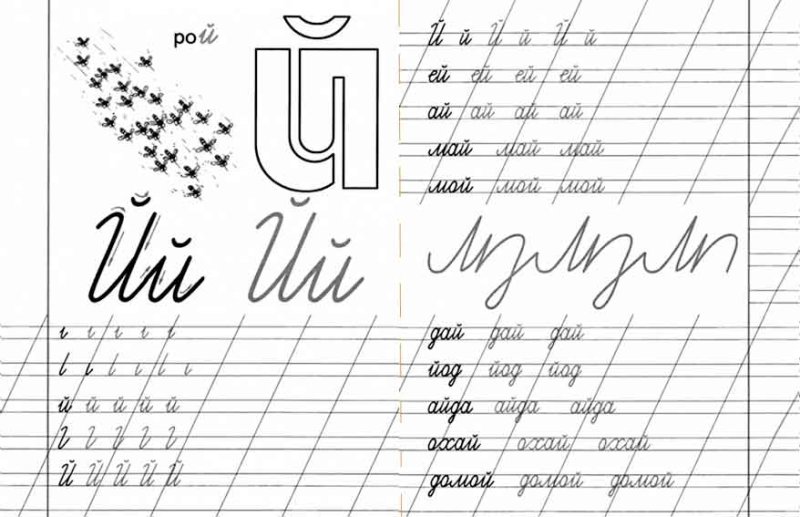 рой
Й
Йй Йй
й й й й й
Й Й Й Й Й
Й й Й й Й й
ей ей ей ей
ай ай ай ай
май май май
мой мой мой
дай дай дай
йод йод йод
айда айда айда
охай охай охай
домой домой домой